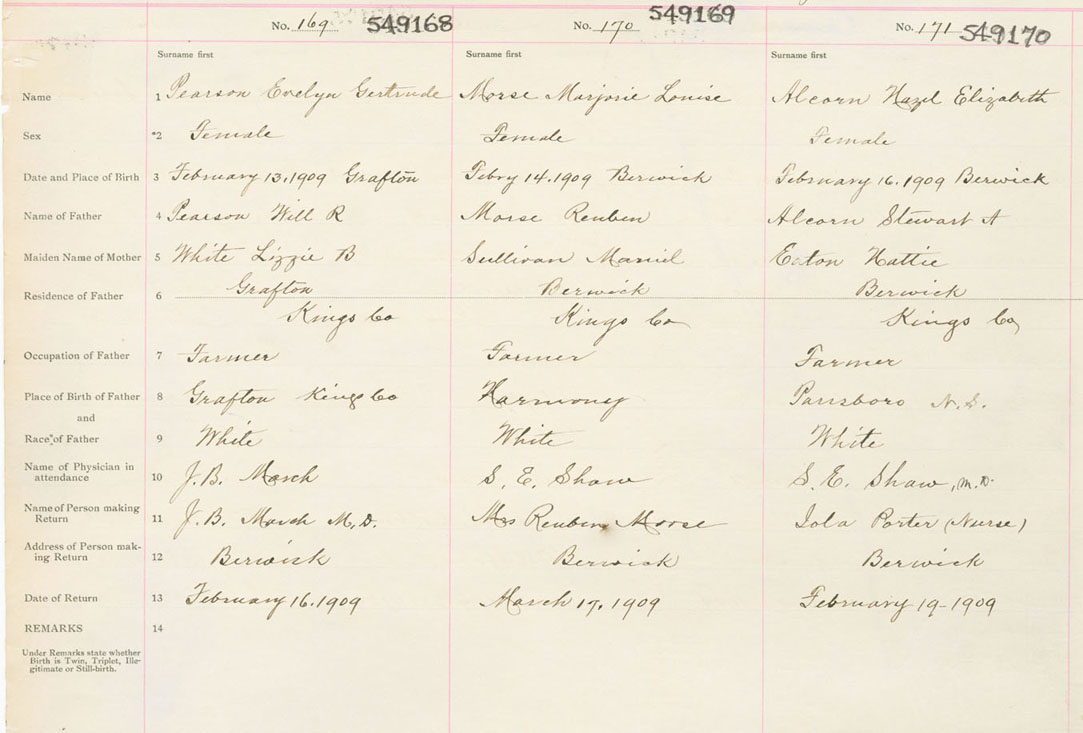 No. 169 549168 No. 170 549169 No. 171 549170
Surname first Surname first Surname first
Name 1 Pearson Evelyn Gertrude Morse Marjorie Louise Alcorn Hazel Elizabeth
Sex *2 Female Female Female
Date and Place of Birth 3 February 13.1909 Grafton Febry 14.1909 Berwick February 16.1909 Berwick
Name of Father 4 Pearson Will R Morse Reuben Alcorn Stewart A
Maiden Name of Mother 5 White Lizzie B Sullivan Eaton Hattie
Residence of Father 6 Grafton Berwick Berwick
Kings Co Kings Co Kings Co
Occupation of Father 7 Farmer Farmer Farmer
Place of Birth of Father 8 Grafton Kings Co Harmony Parrsboro N.S.
and
Race of Father 9 White White White
Name of Physician in
attendance 10 J.B. March S. E. Shaw S. E. Shaw, M.D.
Name of Person making
Return 11 J.B. March M.D. Mrs Reuben Morse Iola Porter (Nurse)
Address of Person mak-
ing Return 12 Berwick Berwick Berwick
Date of Return 13 February 16.1909 March 17, 1909 February 19-1909
REMARKS 14
Under Remarks state whether
Birth is Twin, Triplet, Ille-
gitimate or Still-birth.